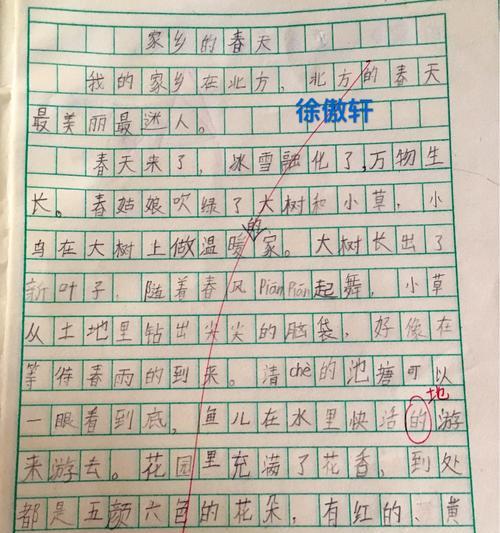 家乡的春天
我的家乡在北方，北方的春天
最美丽最迷人。
徐傲轩
春天来了，冰雪融化了，万物生
长。春姑娘吹绿了大树和小草，小
的
鸟在大树上做温暖家。大树长出了
新叶子，随着春风piānpiān起舞，小草
从土地里钻出尖尖的脑袋，好像在
等待春雨的到来。清chè的池塘可以
地
一眼看到底，鱼儿在水里快活的游
来游去。花园里充满了花香，到处
都是五颜六色的花朵，有红的、黄